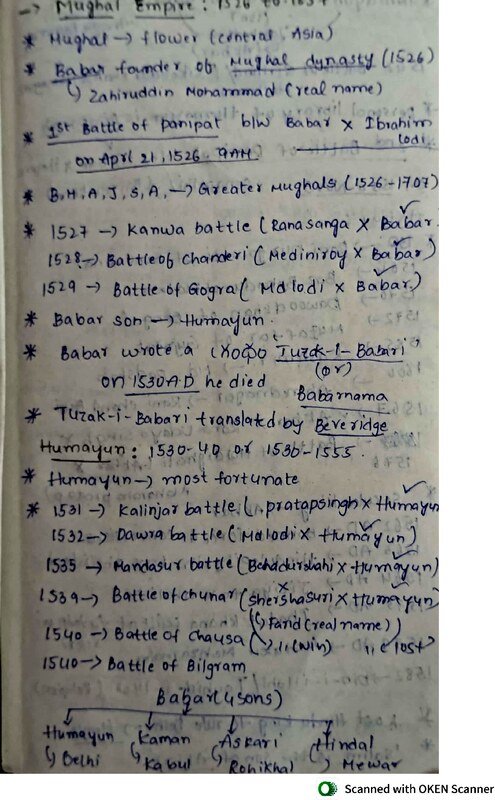 → Mughal Empire: 1526 to 1857
* Mughal → flower (central Asia)
* Babar founder of Mughal dynasty (1526)
↳ Zahiruddin Mohammad (real name)
* 1st Battle of Panipat b/w Babar × Ibrahim lodi
on April 21, 1526, 9AM.
* B, H, A, J, S, A, → Greater Mughals (1526-1707)
* 1527 → Kanwa battle (Ranasanga × Babar ✓
1528 → Battle of Chanderi (Mediniroy × Babar) ✓
1529 → Battle of Gogra (Md lodi × Babar) ✓
* Babar son → Humayun.
* Babar wrote a గ్రంథం Tuzak-I-Babari
(or)
on 1530AD he died Babarnama
* Tuzak-i-Babari translated by Beveridge
Humayun: 1530-40 or 1530-1555.
* Humayun → most fortunate
* 1531 → Kalinjar battle (pratapsingh × Humayun ✓
1532 → Dawra battle (Md lodi × Humayun) ✓
1535 → Mandasur battle (Bahadurshahi × Humayun) ✓
1539 → Battle of chunar (Shershasuri × Humayun) ✓
↳ Farid (real name)
1540 → Battle of Chausa (→ ,, (Win) ,, lost
1540 → Battle of Bilgram
Babar (4 sons)
Humayun Kaman Askari Hindal
↳ Delhi ↳ Kabul ↳ Rohikhal ↳ Mewar
Scanned with OKEN Scanner